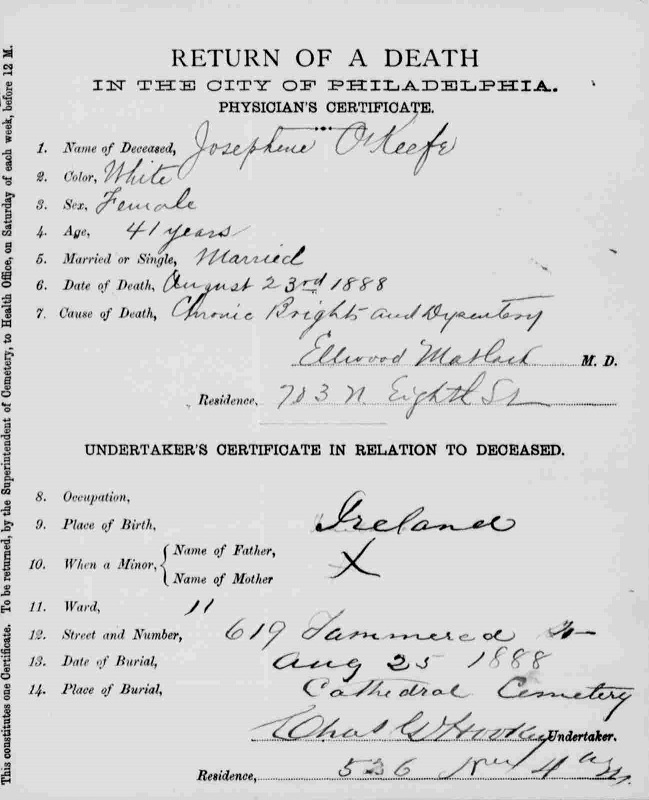 RETURN OF A DEATH
IN THE CITY OF PHILADELPHIA.
PHYSICIAN'S CERTIFICATE.
1. Name of Deceased, Josephine O'Keefe
2. Color, White
3. Sex, Female
4. Age, 41 years
5. Married or Single, Married
6. Date of Death, August 23rd 1888
7. Cause of Death, Chronic Brights and Dysentery
Ellwood Matlack M. D.
Residence, 703 N. Eighth St
UNDERTAKER'S CERTIFICATE IN RELATION TO DECEASED.
8. Occupation,
9. Place of Birth, Ireland
10. When a Minor, { Name of Father,
Name of Mother X
11. Ward, 11
12. Street and Number, 619
13. Date of Burial, Aug 25 1888
14. Place of Burial, Cathedral Cemetery
Chas Undertaker.
Residence, 536
This constitutes one Certificate. To be returned, by the Superintendent of Cemetery, to Health Office, on Saturday of each week, before 12 M.